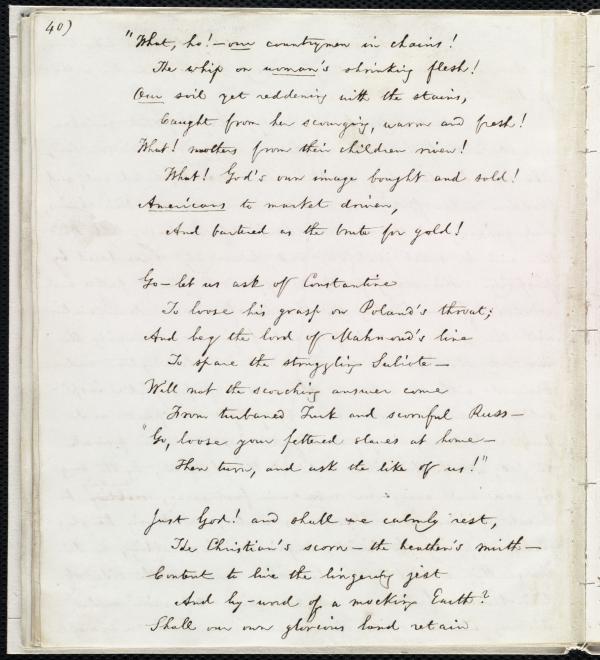 40)
"What, ho! – our countrymen in chains!
The whip on woman's shrinking flesh!
Our soil yet reddening with the stains,
Caught from her scourging, warm and fresh!
What! mothers from their children riven!
What! God's own image bought and sold!
Americans to market driven,
And bartered as the brute for gold!
Go – let us ask of Constantine
To loose his grasp on Poland's throat;
And beg the lord of Mahmoud's line
To spare the struggling Suliote –
Will not the scorching answer come
From turbaned Turk and scornful Russ –
"Go, loose your fettered slaves at home –
Then turn, and ask the like of us!"
Just God! and shall we calmly rest,
The Christian's scorn – the heathen's mirth –
Content to live the lingering jest
And by-word of a mocking Earth?
Shall our own glorious land retain